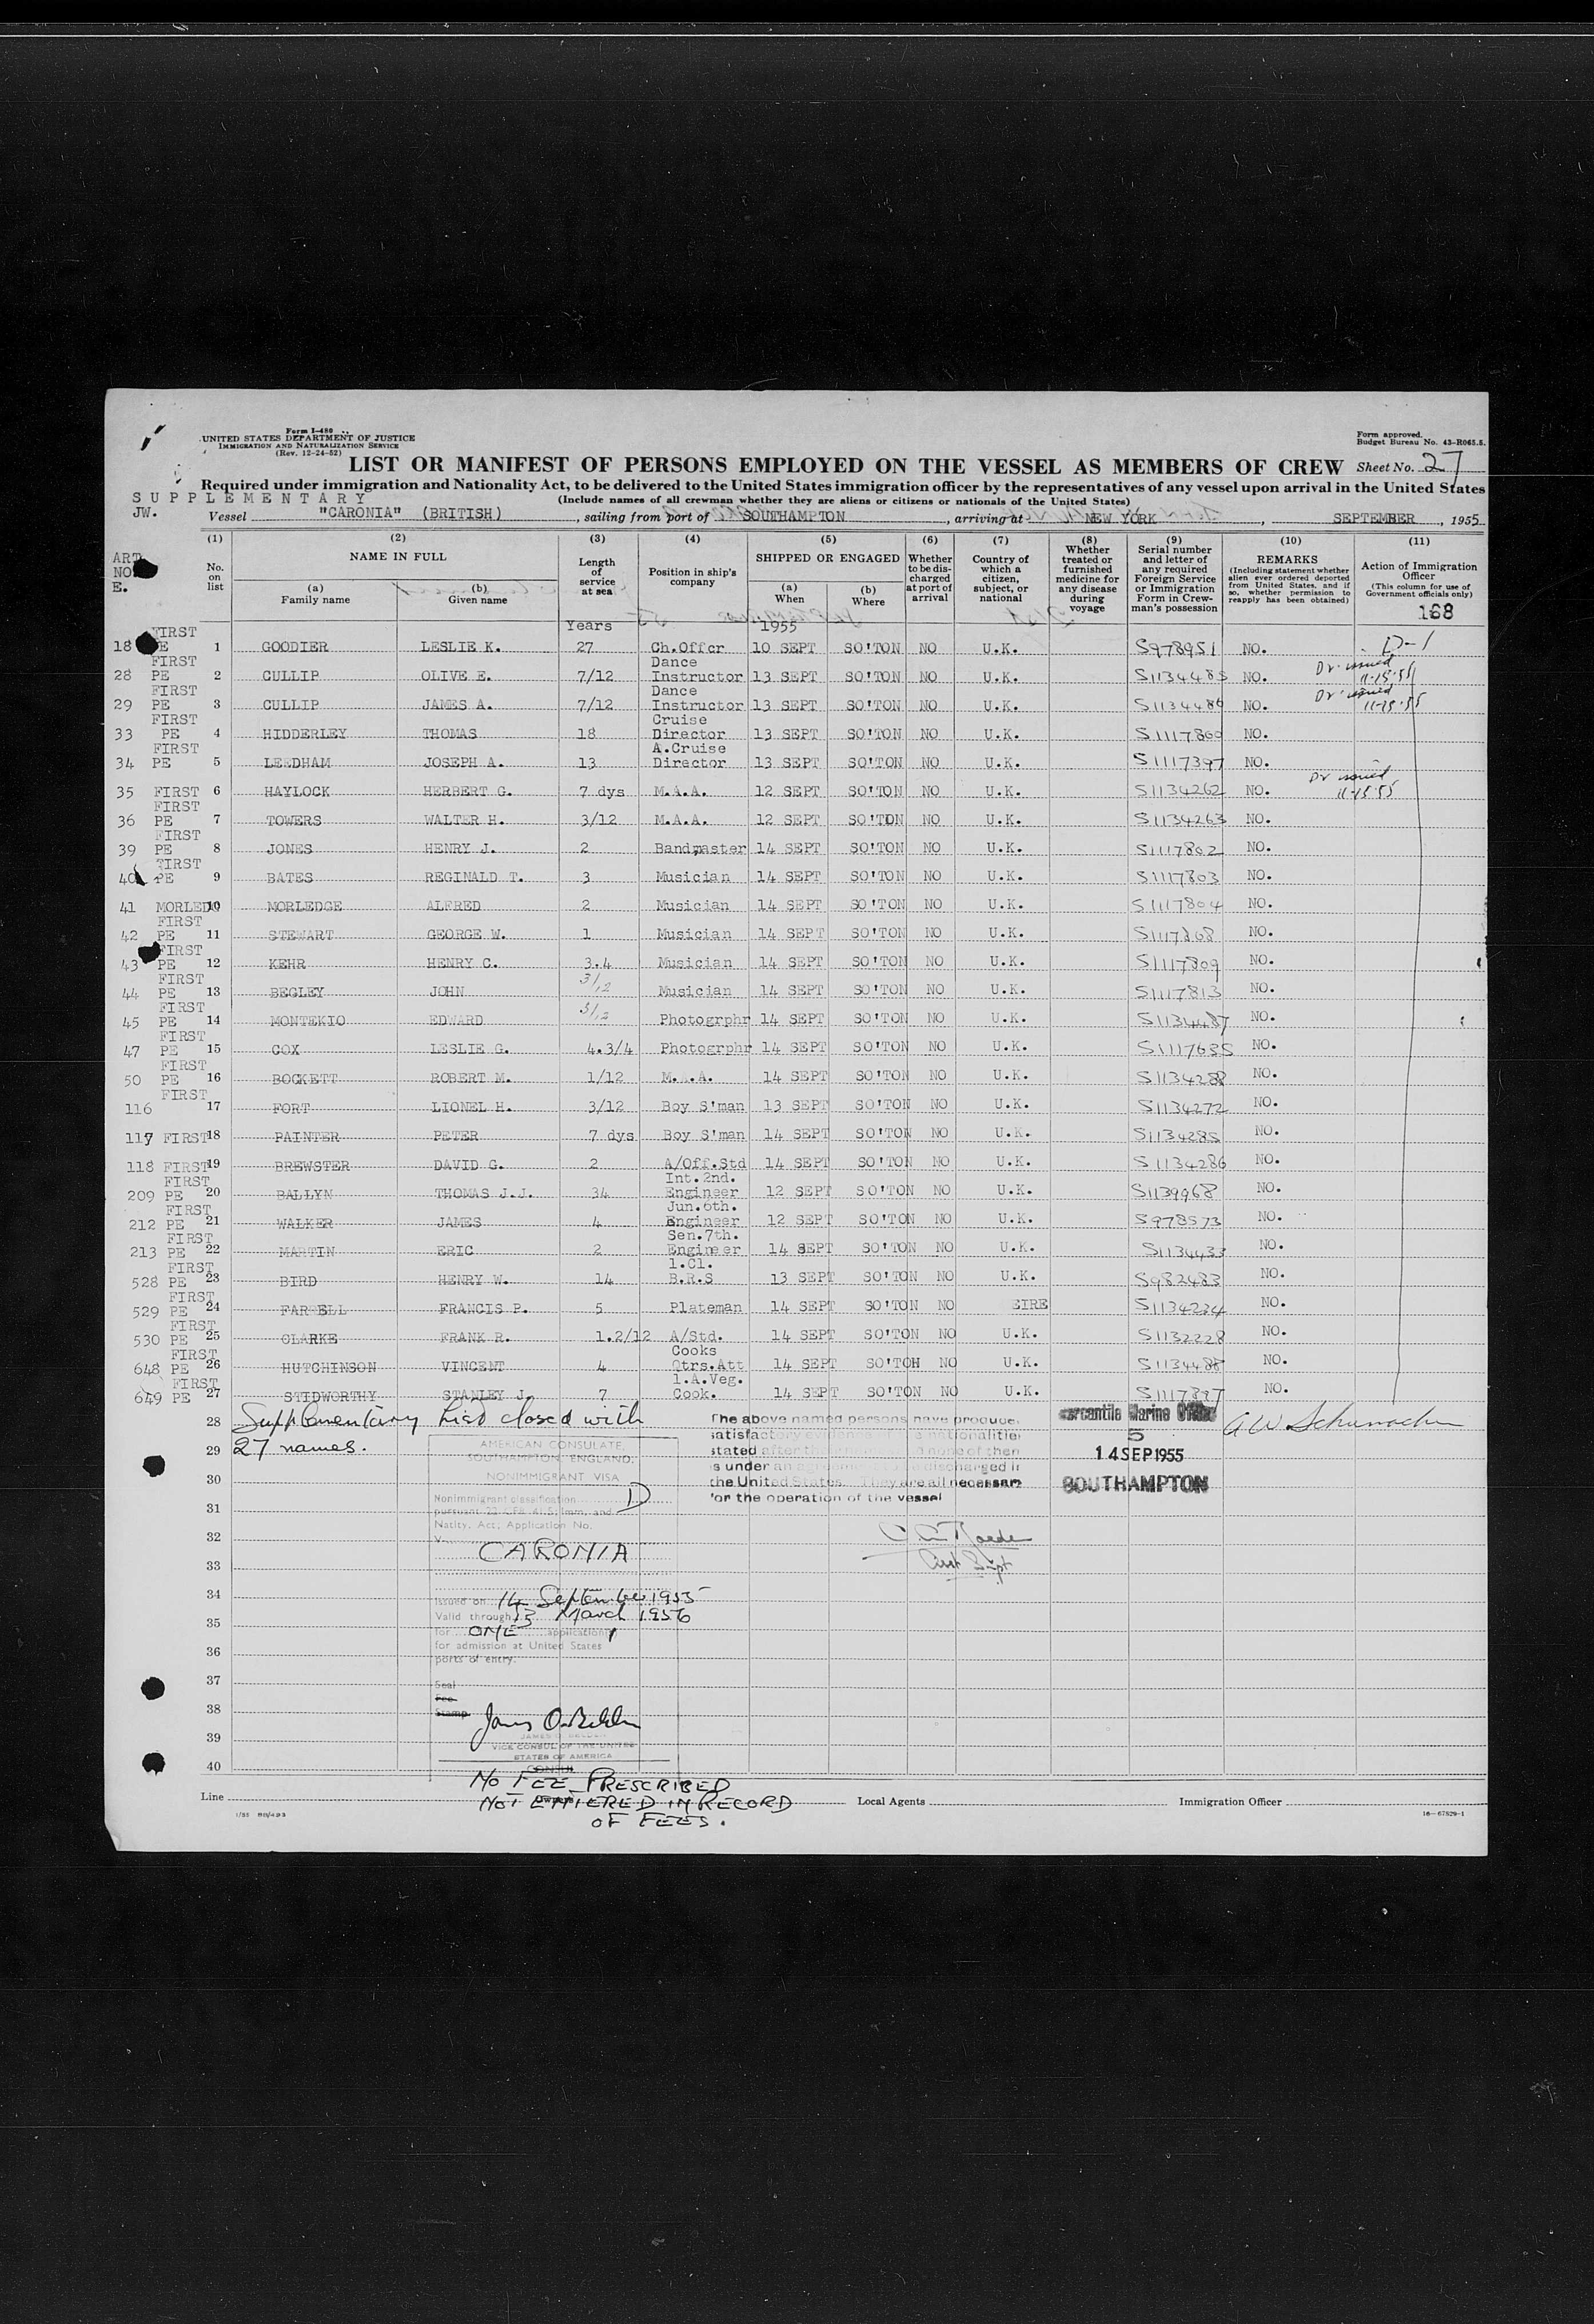 Form I-480
UNITED STATES DEPARTMENT OF JUSTICE
IMMIGRATION AND NATURALIZATION SERVICE
(Rev. 12-24-52)
Form approved.
Budget Bureau No. 43-R065.5.
LIST OR MANIFEST OF PERSONS EMPLOYED ON THE VESSEL AS MEMBERS OF CREW Sheet No. 27
Required under immigration and Nationality Act, to be delivered to the United States immigration officer by the representatives of any vessel upon arrival in the United States
SUPPLEMENTARY
(Include names of all crewman whether they are aliens or citizens or nationals of the United States)
JW.
Vessel "CARONIA" (BRITISH), sailing from port of SOUTHAMPTON, arriving at NEW YORK, SEPTEMBER, 1955
ART. NO. E.
(1) No. on list
(2) NAME IN FULL (a) Family name (b) Given name
(3) Length of service at sea
(4) Position in ship's company
(5) SHIPPED OR ENGAGED (a) When (b) Where
(6) Whether to be discharged at port of arrival
(7) Country of which a citizen, subject, or national
(8) Whether treated or furnished medicine for any disease during voyage
(9) Serial number and letter of any required Foreign Service or Immigration Form in Crewman's possession
(10) REMARKS (Including statement whether alien ever ordered deported from United States, and if so, whether permission to reapply has been obtained)
(11) Action of Immigration Officer (This column for use of Government officials only)
168
Years 1955
18 FIRST PE 1 GOODIER LESLIE K. 27 Ch.Offcr 10 SEPT SO'TON NO U.K. S978951 NO. D-1
28 FIRST PE 2 CULLIP OLIVE E. 7/12 Dance Instructor 13 SEPT SO'TON NO U.K. S1134483 NO. Dr. issued 11-15-55
29 FIRST PE 3 CULLIP JAMES A. 7/12 Dance Instructor 13 SEPT SO'TON NO U.K. S1134484 NO. Dr. issued 11-15-55
33 FIRST PE 4 HIDDERLEY THOMAS 18 Cruise Director 13 SEPT SO'TON NO U.K. S1117800 NO.
34 FIRST PE 5 LEEDHAM JOSEPH A. 13 A.Cruise Director 13 SEPT SO'TON NO U.K. S1117397 NO.
35 FIRST 6 HAYLOCK HERBERT G. 7 dys M.A.A. 12 SEPT SO'TON NO U.K. S1134262 NO. Dr issued 11-15-55
36 FIRST PE 7 TOWERS WALTER H. 3/12 M.A.A. 12 SEPT SO'TON NO U.K. S1134263 NO.
39 FIRST PE 8 JONES HENRY J. 2 Bandmaster 14 SEPT SO'TON NO U.K. S1117802 NO.
40 FIRST PE 9 BATES REGINALD T. 3 Musician 14 SEPT SO'TON NO U.K. S1117803 NO.
41 MORLEDG 10 MORLEDGE ALFRED 2 Musician 14 SEPT SO'TON NO U.K. S1117804 NO.
42 FIRST PE 11 STEWART GEORGE W. 1 Musician 14 SEPT SO'TON NO U.K. S1117868 NO.
43 FIRST PE 12 KEHR HENRY C. 3.4 Musician 14 SEPT SO'TON NO U.K. S1117809 NO.
44 FIRST PE 13 BEGLEY JOHN 3/12 Musician 14 SEPT SO'TON NO U.K. S1117813 NO.
45 FIRST PE 14 MONTEKIO EDWARD 5/12 Photogrphr 14 SEPT SO'TON NO U.K. S1134487 NO.
47 FIRST PE 15 COX LESLIE G. 4.3/4 Photogrphr 14 SEPT SO'TON NO U.K. S1117635 NO.
50 FIRST PE 16 BOCKETT ROBERT M. 1/12 M.A.A. 14 SEPT SO'TON NO U.K. S1134288 NO.
116 FIRST 17 FORT LIONEL H. 3/12 Boy S'man 13 SEPT SO'TON NO U.K. S1134272 NO.
117 FIRST 18 PAINTER PETER 7 dys Boy S'man 14 SEPT SO'TON NO U.K. S1134285 NO.
118 FIRST 19 BREWSTER DAVID G. 2 A/Off.Std 14 SEPT SO'TON NO U.K. S1134286 NO.
209 FIRST PE 20 BALLYN THOMAS J.J. 34 Int.2nd. Engineer 12 SEPT SO'TON NO U.K. S1139968 NO.
212 FIRST PE 21 WALKER JAMES 4 Jun.6th. Engineer 12 SEPT SO'TON NO U.K. S978573 NO.
213 FIRST PE 22 MARTIN ERIC 2 Sen.7th. Engineer 14 SEPT SO'TON NO U.K. S1134433 NO.
528 FIRST PE 23 BIRD HENRY W. 14 1.Cl. B.R.S 13 SEPT SO'TON NO U.K. S982483 NO.
529 FIRST PE 24 FARRELL FRANCIS P. 5 Plateman 14 SEPT SO'TON NO EIRE S1134234 NO.
530 FIRST PE 25 CLARKE FRANK R. 1.2/12 A/Std. 14 SEPT SO'TON NO U.K. S1132228 NO.
648 FIRST PE 26 HUTCHINSON VINCENT 4 Cooks Qtrs.Att 14 SEPT SO'TOH NO U.K. S1134488 NO.
649 FIRST PE 27 STIDWORTHY STANLEY J. 7 1.A.Veg. Cook. 14 SEPT SO'TON NO U.K. S1117897 NO.
28 Supplementary List closed with
29 27 names.
30
31
32
33
34
35
36
37
38
39
40
AMERICAN CONSULATE,
SOUTHAMPTON, ENGLAND.
NONIMMIGRANT VISA
Nonimmigrant classification D
pursuant 22 CFR 41.5; Imm. and
Natlty. Act; Application No.
V.
CARONIA
Issued on 14 September 1955
Valid through 13 March 1956
for ONE application
for admission at United States
ports of entry.
Seal
Fee
Stamp
JAMES O. BELDEN
VICE CONSUL OF THE UNITED
STATES OF AMERICA
CONSUL
NO FEE PRESCRIBED
NOT ENTERED IN RECORD
OF FEES.
The above named persons have produced
satisfactory evidence of the nationalities
stated after their names and none of them
is under an agreement to be discharged in
the United States. They are all necessary
for the operation of the vessel
Mercantile Marine Office
5
14 SEP 1955
SOUTHAMPTON
A W Schumacher
Line
Local Agents
Immigration Officer
16-67829-1